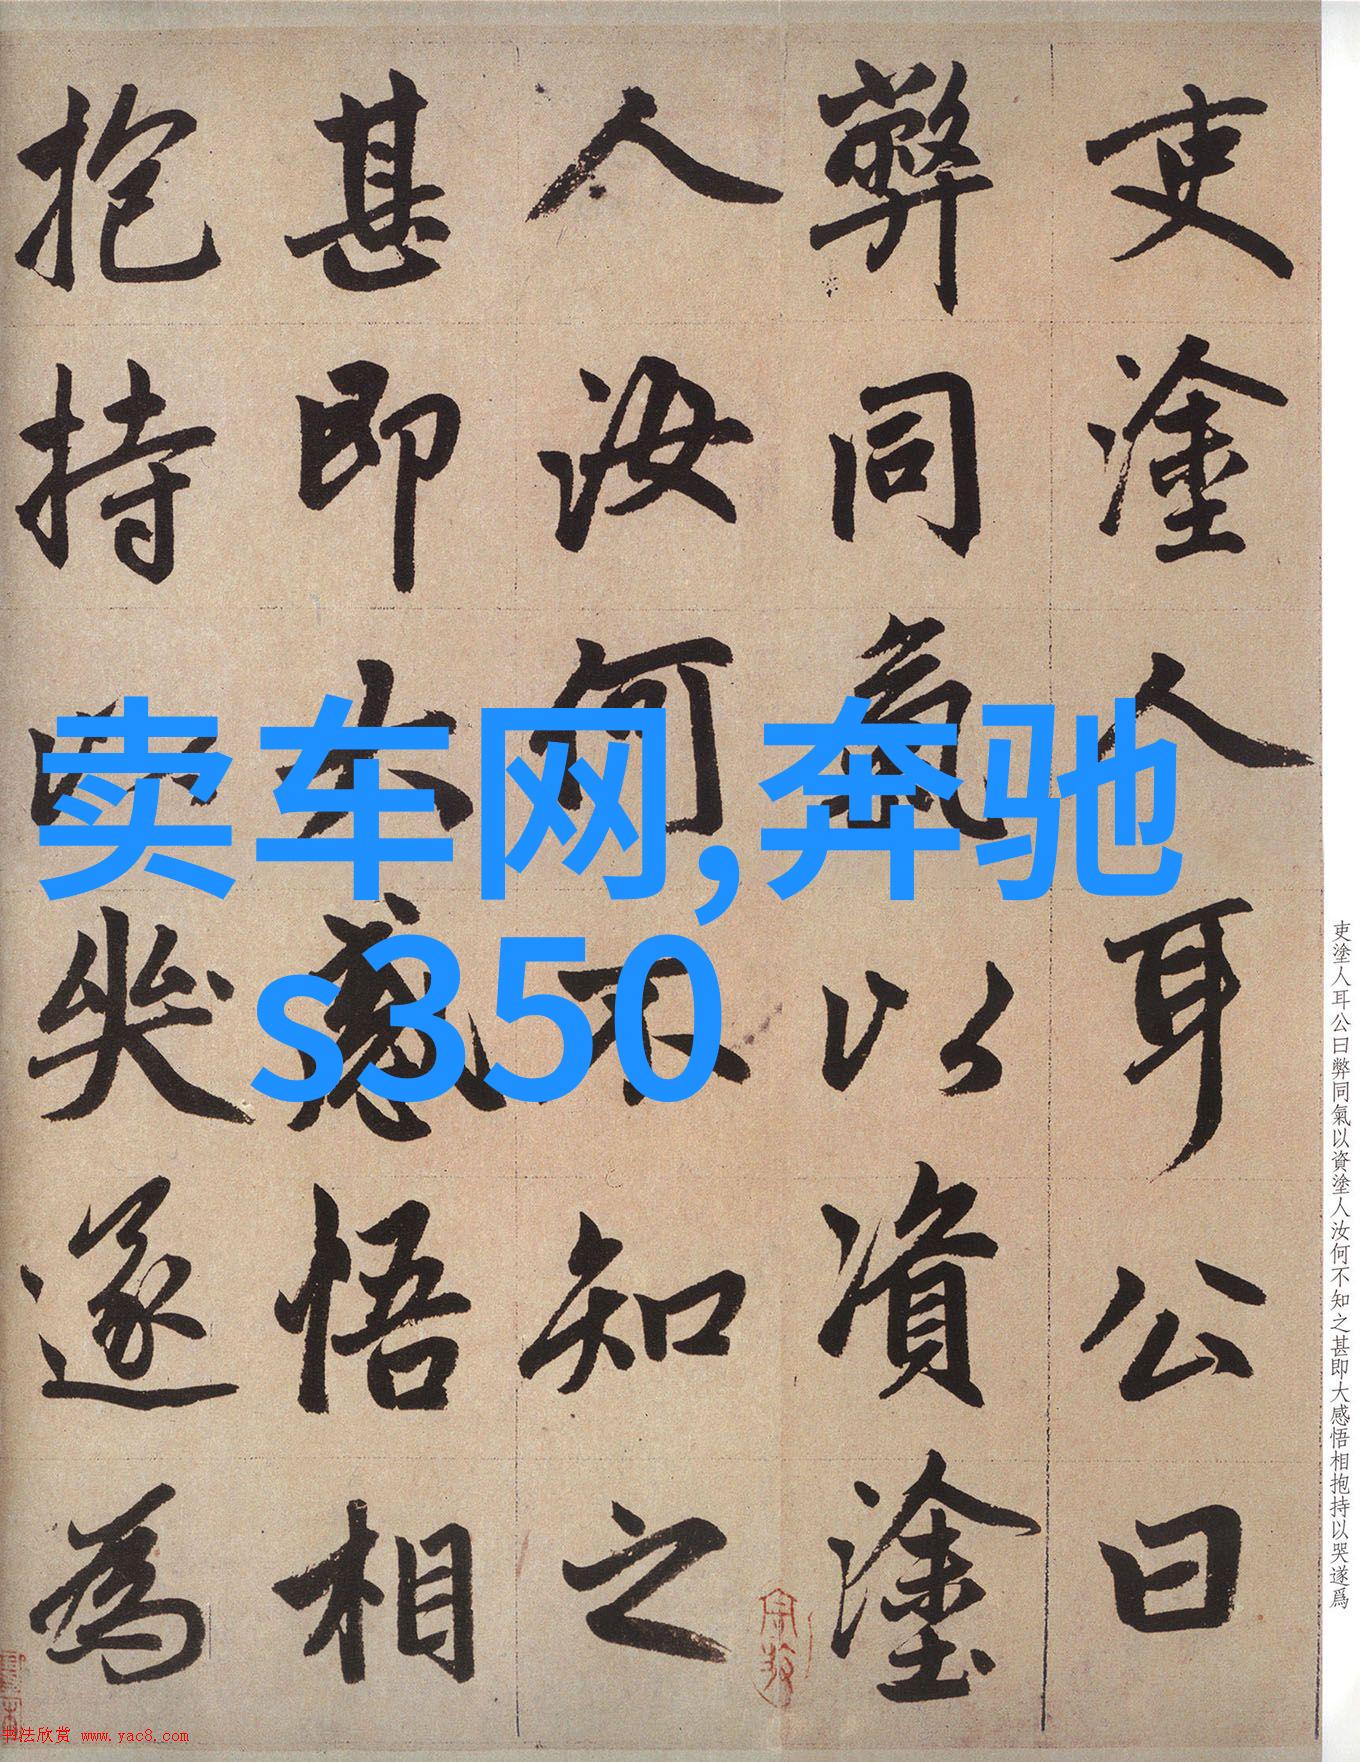 卖车网,奔驰
s350
吏塗人耳公曰
弊同氣以資塗
人汝何不知之
甚即大感悟相
抱持以哭遂為
吏塗人耳公曰弊同氣以資塗人汝何不知之甚即大感悟相抱持以哭遂爲
书法欣赏 www.yac8.com